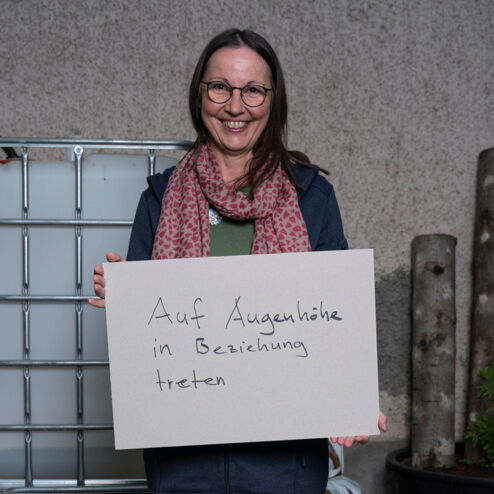 Auf Augenhöhe
in Beziehung
treten